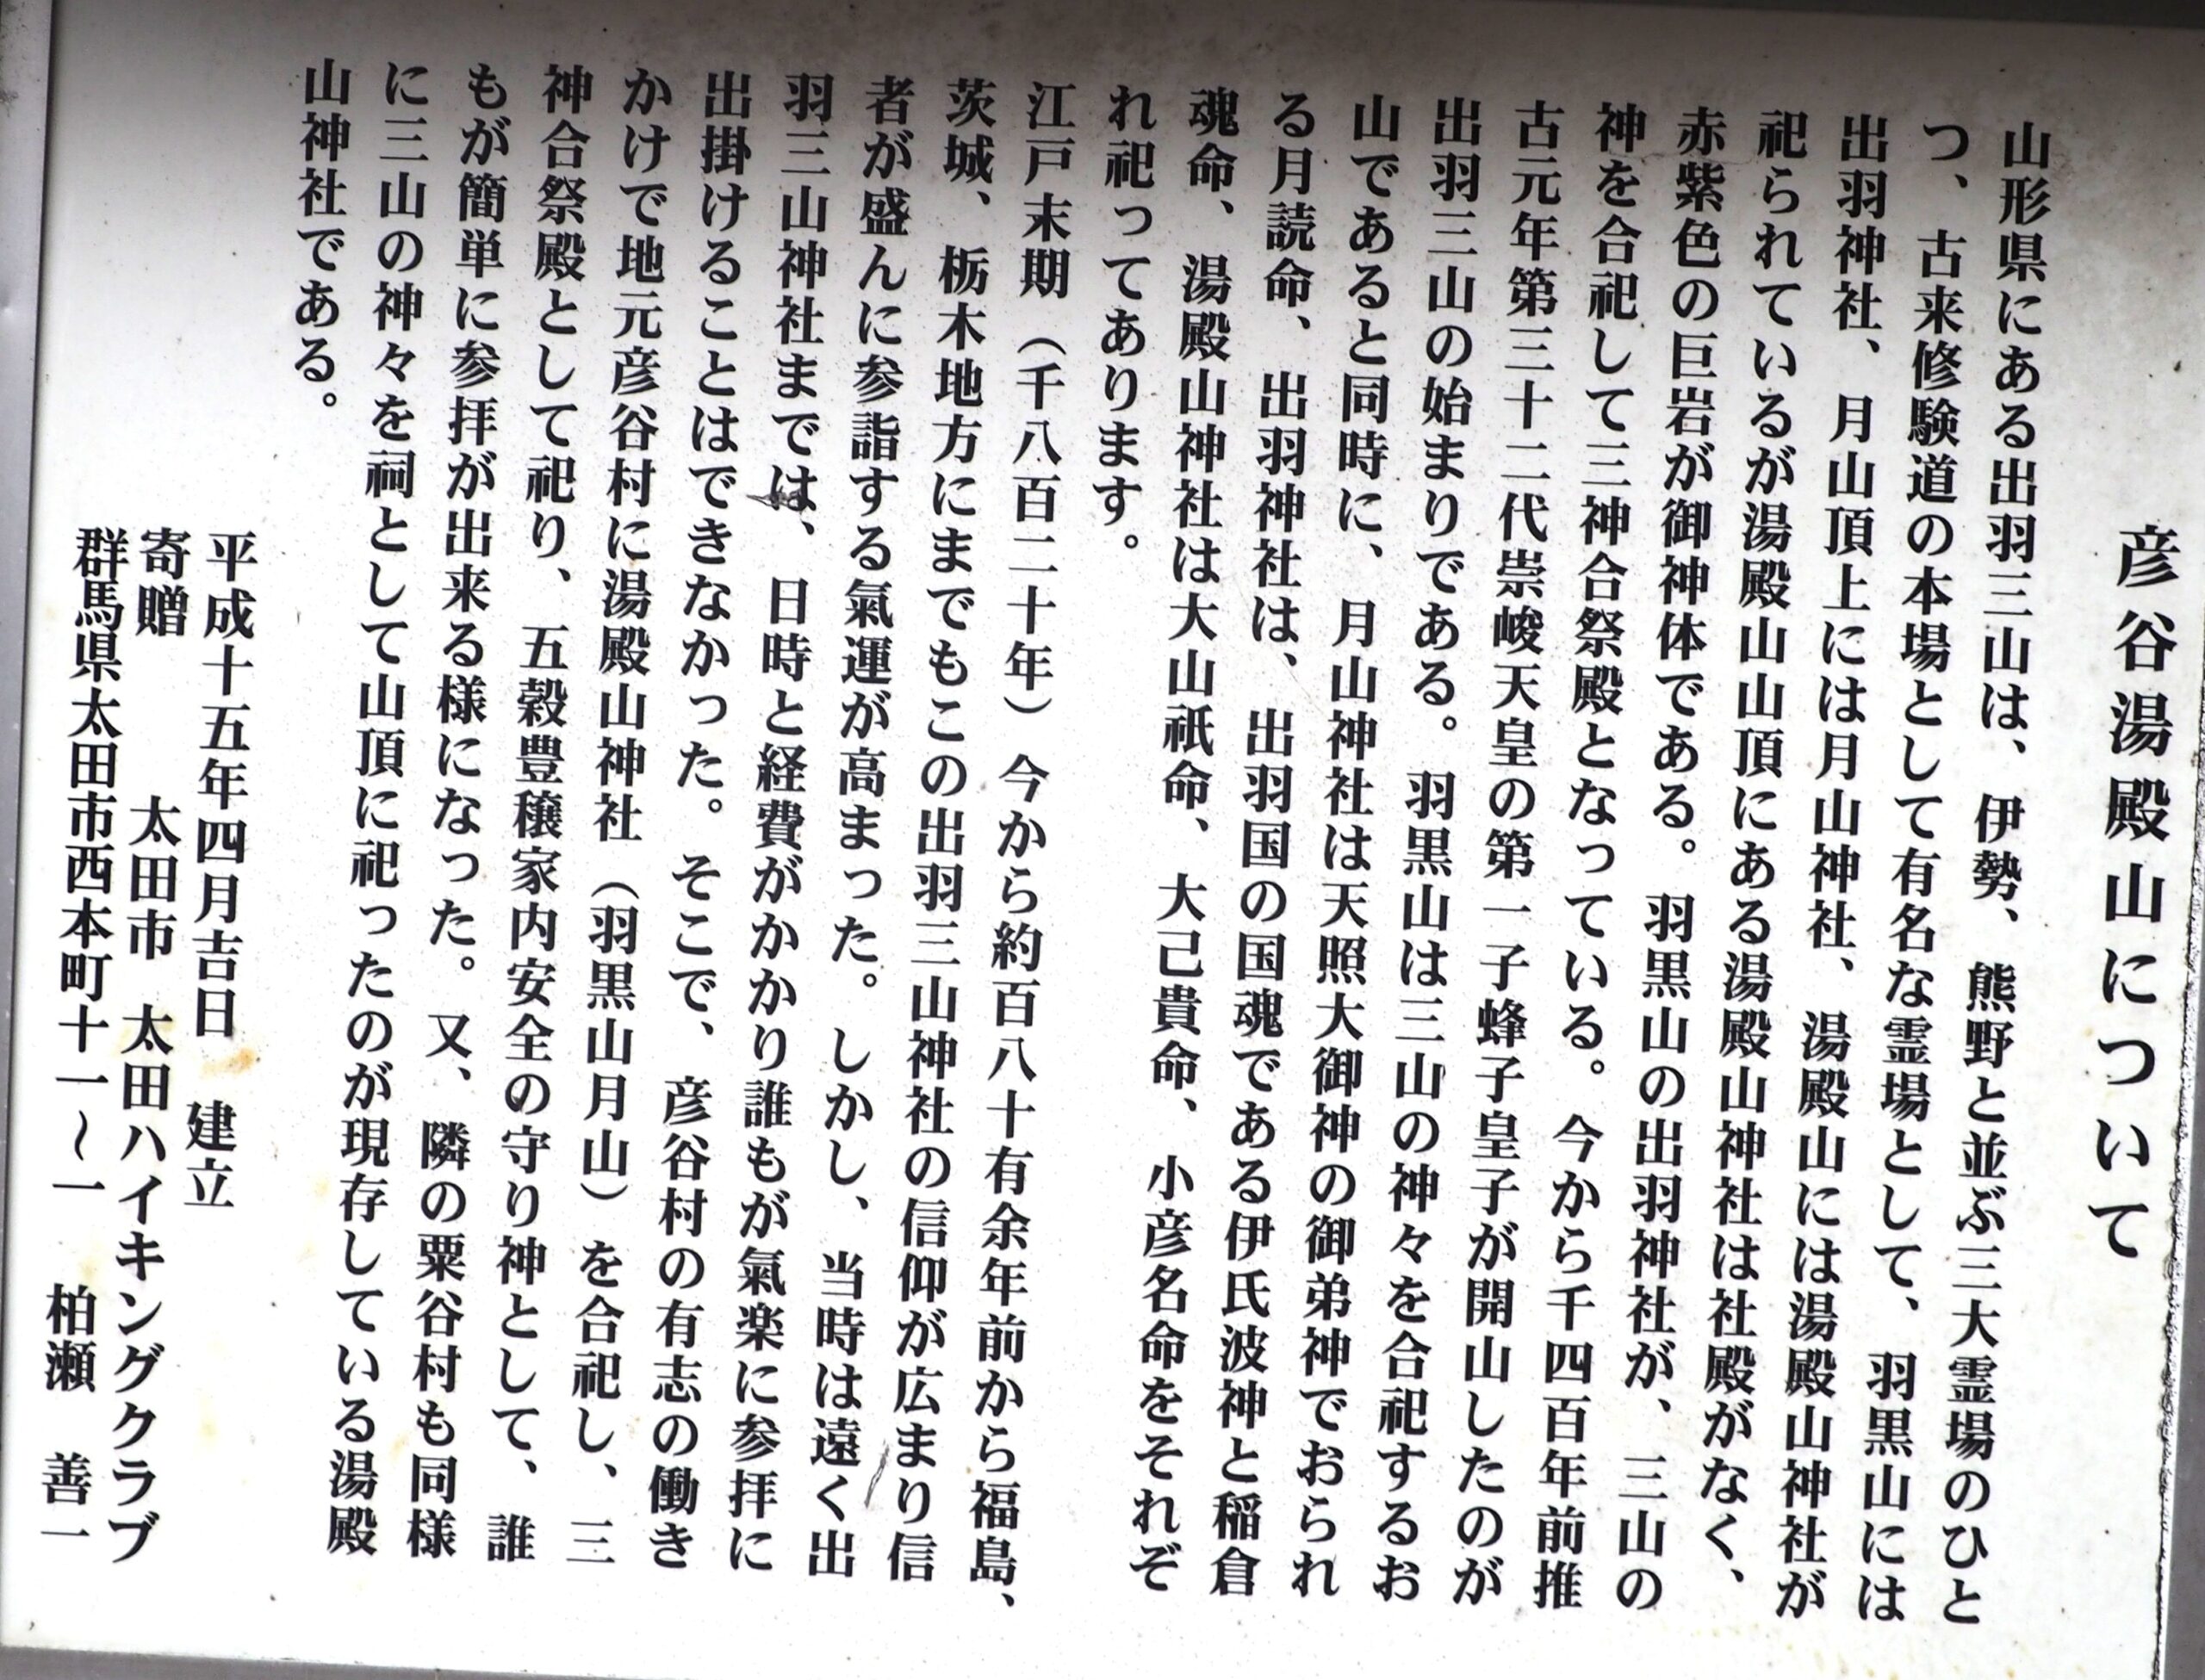 彦谷湯殿山について
山形県にある出羽三山は、伊勢、熊野と並ぶ三大霊場のひと
つ、古来修験道の本場として有名な霊場として、羽黒山には
出羽神社、月山頂上には月山神社、湯殿山には湯殿山神社が
祀られているが湯殿山山頂にある湯殿山神社は社殿がなく、
赤紫色の巨岩が御神体である。羽黒山の出羽神社が、三山の
神を合祀して三神合祭殿となっている。今から千四百年前推
古元年第三十二代崇峻天皇の第一子蜂子皇子が開山したのが
出羽三山の始まりである。羽黒山は三山の神々を合祀するお
山であると同時に、月山神社は天照大御神の御弟神でおられ
る月読命、出羽神社は、出羽国の国魂である伊氏波神と稲倉
魂命、湯殿山神社は大山祇命、大己貴命、小彦名命をそれぞ
れ祀ってあります。
江戸末期（千八百二十年）今から約百八十有余年前から福島、
茨城、栃木地方にまでもこの出羽三山神社の信仰が広まり信
者が盛んに参詣する氣運が高まった。しかし、当時は遠く出
羽三山神社までは、日時と経費がかかり誰もが氣楽に参拝に
出掛けることはできなかった。そこで、彦谷村の有志の働き
かけで地元彦谷村に湯殿山神社（羽黒山月山）を合祀し、三
神合祭殿として祀り、五穀豊穣家内安全の守り神として、誰
もが簡単に参拝が出来る様になった。又、隣の粟谷村も同様
に三山の神々を祠として山頂に祀ったのが現存している湯殿
山神社である。
平成十五年四月吉日　建立
寄贈　太田市　太田ハイキングクラブ
群馬県太田市西本町十一～一　柏瀬　善一